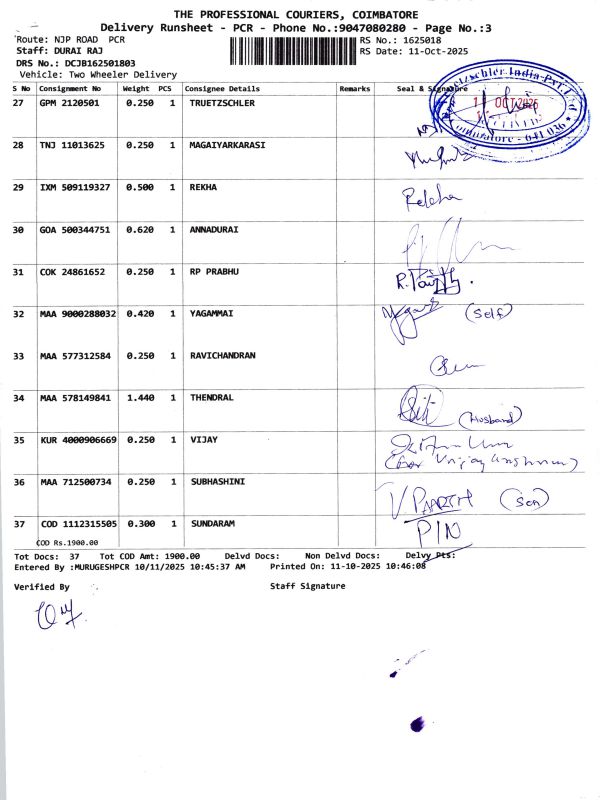 THE PROFESSIONAL COURIERS, COIMBATORE
Delivery Runsheet - PCR - Phone No.:9047080280 - Page No.:3
Route: NJP ROAD PCR RS No.: 1625018
Staff: DURAI RAJ RS Date: 11-Oct-2025
DRS No.: DCJB162501803
Vehicle: Two Wheeler Delivery
S No Consignment No Weight PCS Consignee Details Remarks Seal & Signature
27 GPM 2120501 0.250 1 TRUETZSCHLER
28 TNJ 11013625 0.250 1 MAGAIYARKARASI
29 IXM 509119327 0.500 1 REKHA Rekha
30 GOA 500344751 0.620 1 ANNADURAI
31 COK 24861652 0.250 1 RP PRABHU
32 MAA 9000288032 0.420 1 YAGAMMAI (Self)
33 MAA 577312584 0.250 1 RAVICHANDRAN
34 MAA 578149841 1.440 1 THENDRAL (Husband)
35 KUR 4000906669 0.250 1 VIJAY
36 MAA 712500734 0.250 1 SUBHASHINI (Son)
37 COD 1112315505 0.300 1 SUNDARAM PIN
COD Rs.1900.00
Tot Docs: 37 Tot COD Amt: 1900.00 Delvd Docs: Non Delvd Docs: Delvy Pts:
Entered By :MURUGESHPCR 10/11/2025 10:45:37 AM Printed On: 11-10-2025 10:46:08
Verified By Staff Signature